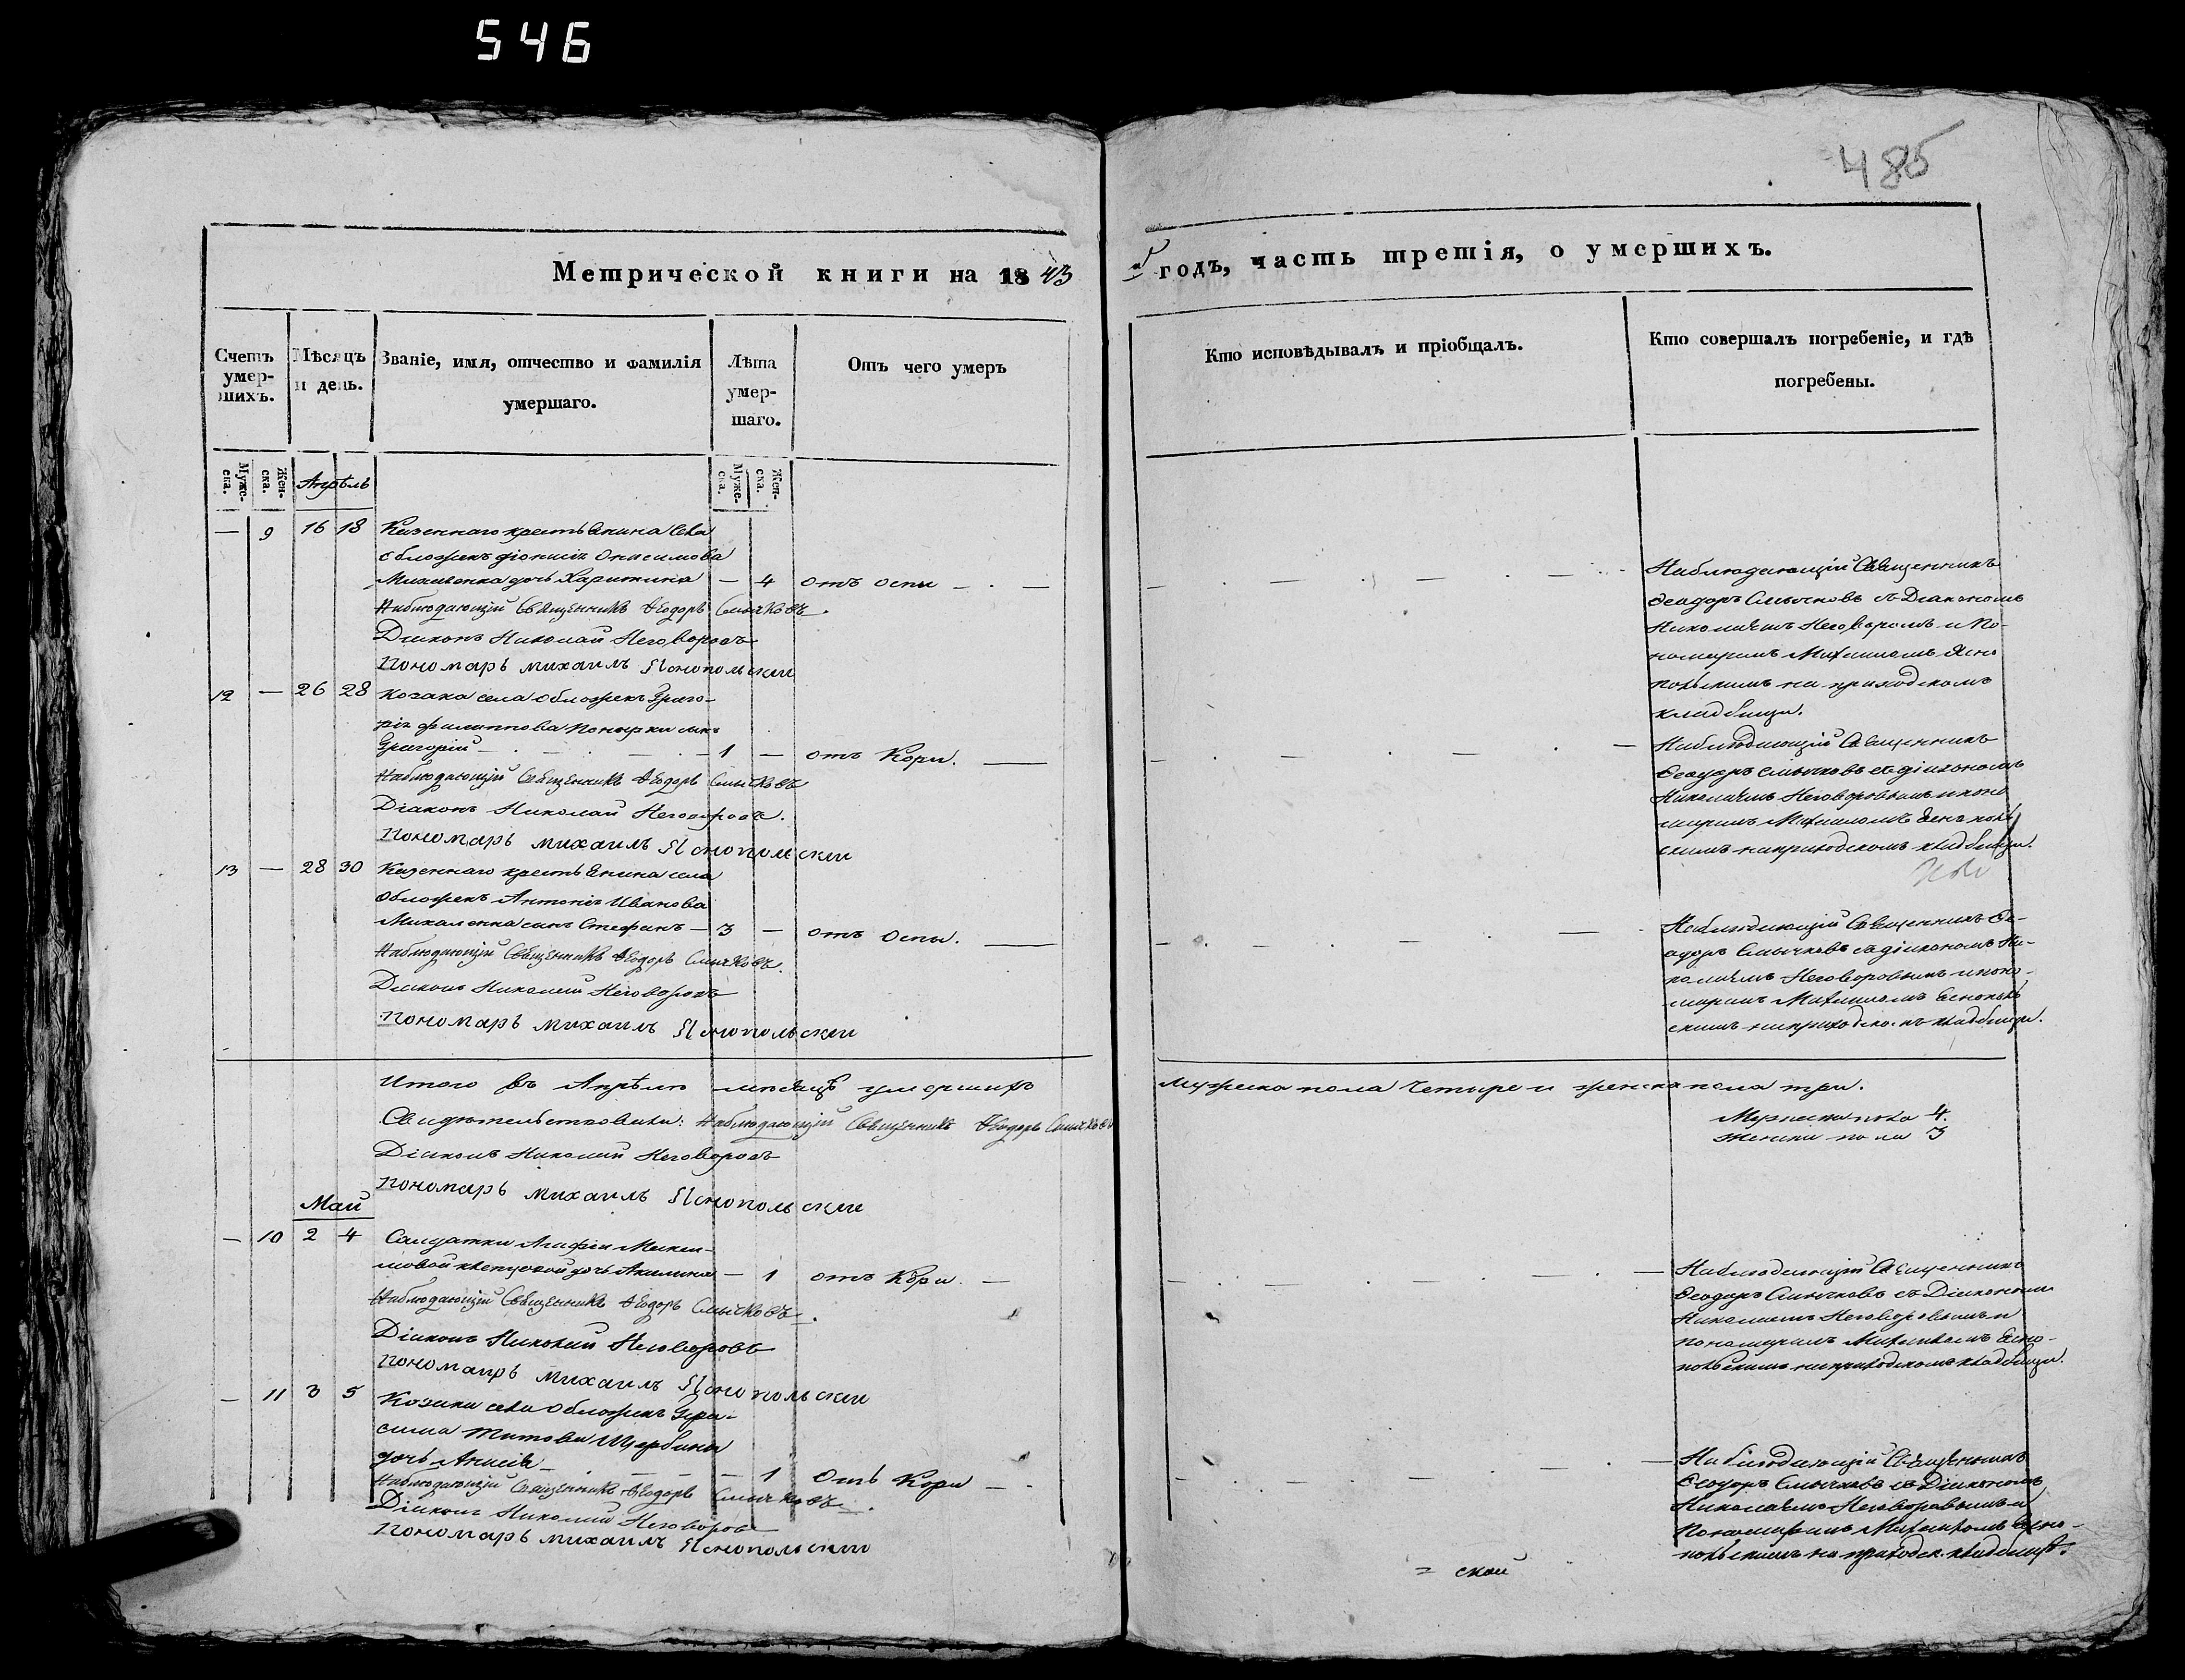 546
485
Метрической книги на 1843
й годъ, часть третія, о умершихъ.
Счетъ умер-шихъ.
Мѣсяцъ и день.
Званіе, имя, отчество и фамилія умершаго.
Лѣта умер-шаго.
Отъ чего умеръ
Кто исповѣдывалъ и пріобщалъ.
Кто совершалъ погребеніе, и гдѣ погребены.
Муже-ска.
Жен-ска.
Апрѣль
Муже-ска.
Жен-ска.
— 9 16 18 Казеннаго крестьянина села
Обложекъ Діонисія Онисимова
дочь Харитина — 4 отъ оспы — . —
Наблюдающій Священникъ Ѳеодоръ Смычковъ.
Діаконъ Николай Неговоровъ
пономарь михаилъ Яснопольскій
Наблюдающій Священникъ
Ѳеодоръ Смычковъ съ Діакономъ
Николаемъ Неговоровымъ и По-
номаремъ Михаиломъ Ясно
польскимъ на приходскомъ
кладбищи.
12 — 26 28 Козака села Обложекъ Григо-
рія Филиппова сынъ
Григорій — 1 — отъ Кори. —
Наблюдающій Священникъ Ѳеодоръ Смычковъ
Діаконъ Николай Неговоровъ.
пономарь михаилъ Яснопольскій
Наблюдающій Священникъ
Ѳеодоръ Смычковъ съ діакономъ
Николаемъ Неговоровымъ и поно
маремъ Михаиломъ Яснополь
скимъ на приходскомъ кладбищи.
13 — 28 30 Казеннаго крестьянина села
Обложекъ Антонія Иванова
Михаленка сынъ Стефанъ — 3 — отъ Оспы. —
Наблюдающій Священникъ Ѳеодоръ Смычковъ.
Діаконъ Николай Неговоровъ
пономарь михаилъ Яснопольскій
Наблюдающій Священникъ Ѳе-
одоръ Смычковъ съ діакономъ Ни-
колаемъ Неговоровымъ и поно-
маремъ Михаиломъ Яснополь
скимъ на приходскомъ кладбищи.
Итого въ Апрѣлѣ мѣсяцѣ умершихъ
мужеска пола четыре и женска пола три.
Мужеска пола 4.
Женска пола 3
Свидѣтельствовали: Наблюдающій Священникъ Ѳеодоръ Смычковъ
Діаконъ Николай Неговоровъ
пономарь михаилъ Яснопольскій
Май
— 10 2 4 Солдатки Агафіи
дочь Акилина — 1 отъ Кори. —
Наблюдающій Священникъ Ѳеодоръ Смычковъ.
Діаконъ Николай Неговоровъ
пономарь михаилъ Яснопольскій
Наблюдающій Священникъ
Ѳеодоръ Смычковъ съ Діакономъ
Николаемъ Неговоровымъ и
пономаремъ Михаиломъ Ясно-
польскимъ на приходскомъ кладбищи.
— 11 3 5 Козака села Обложекъ Гера-
сима Титова Щербины
дочь Анисія — 1 Отъ Кори — .
Наблюдающій Священникъ Ѳеодоръ Смычковъ.
Діаконъ Николай Неговоровъ
пономарь михаилъ Яснопольскій
Наблюдающій Священникъ
Ѳеодоръ Смычковъ съ Діакономъ
Николаемъ Неговоровымъ и
Пономаремъ Михаиломъ Ясно-
польскимъ на приходск. кладбищѣ.
= ской